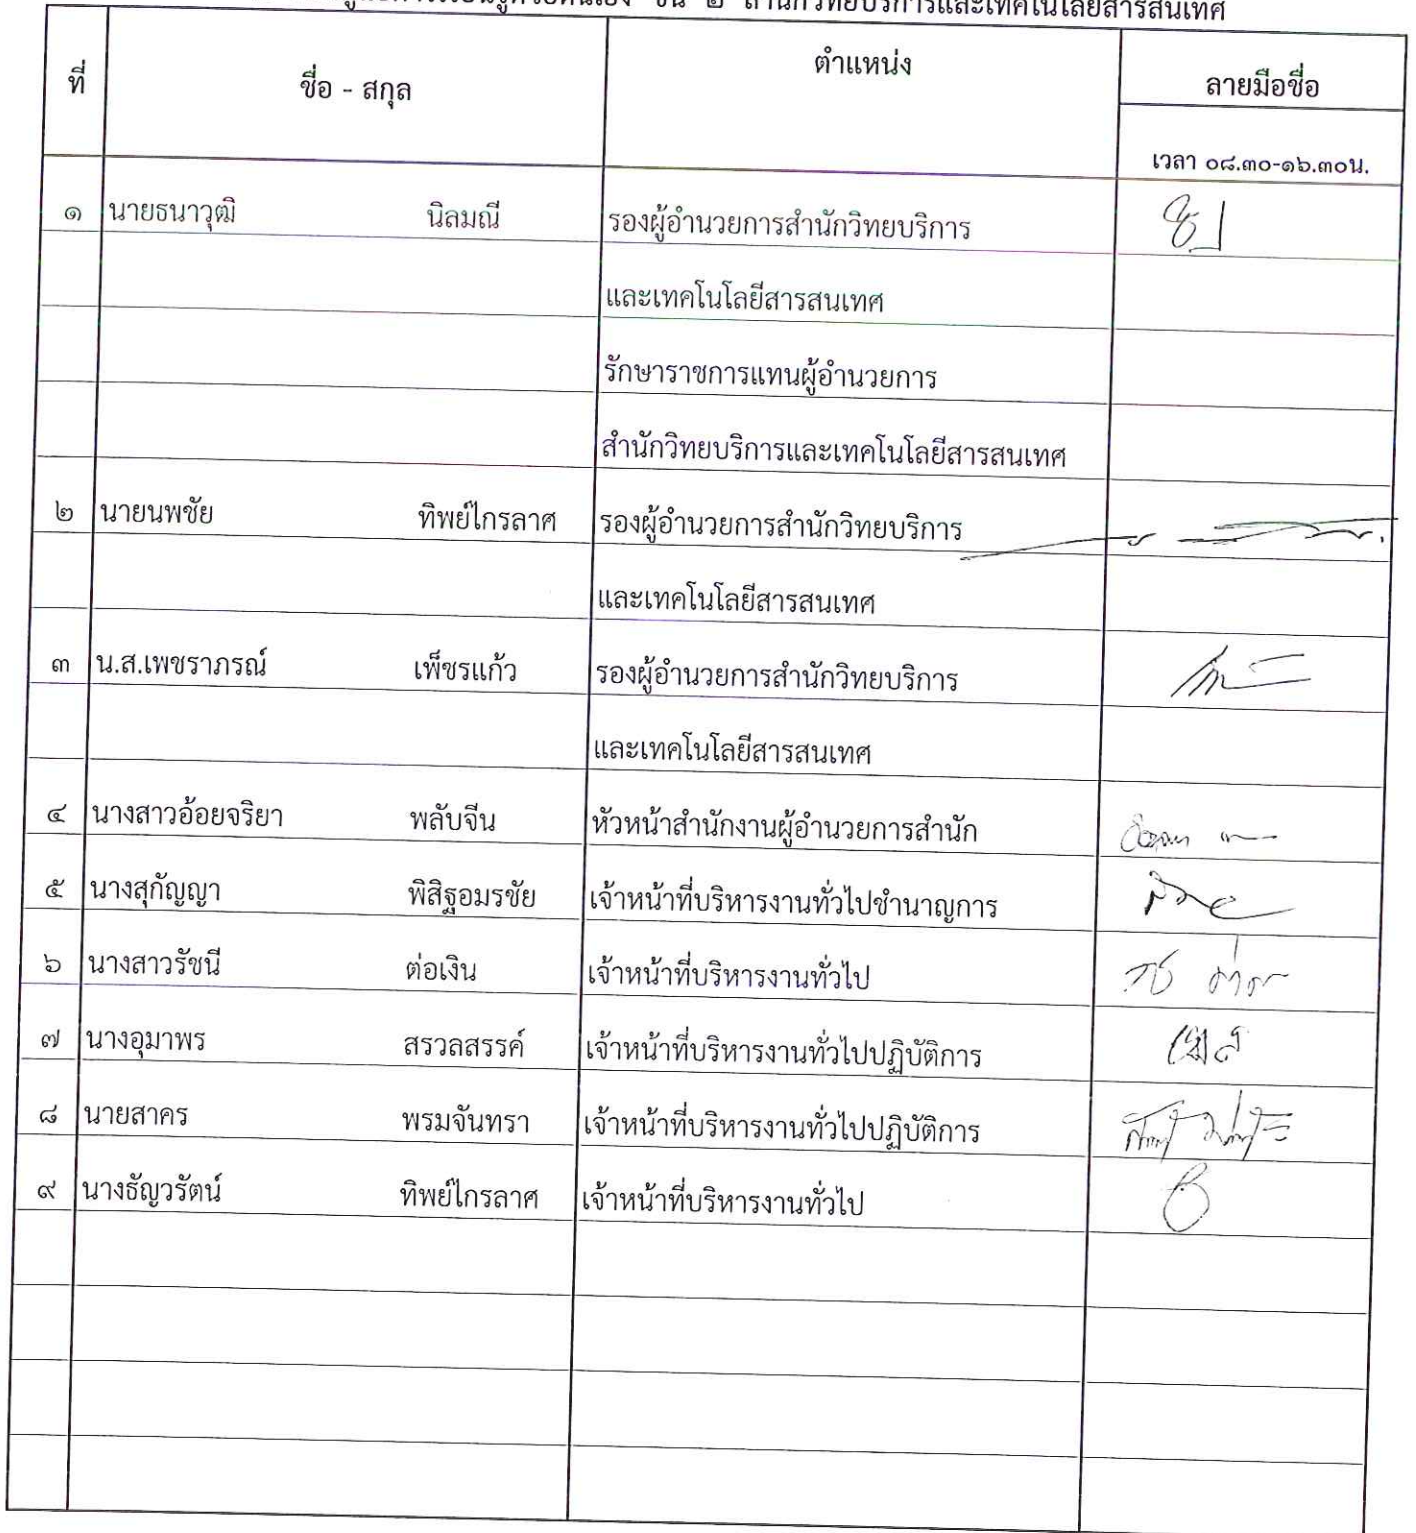 ด้วยตนเอง ชั้น ๒ สำนักวิทยบริการและเทคโนโลยีสารสนเทศ
ที่ ชื่อ - สกุล ตำแหน่ง ลายมือชื่อ
เวลา ๐๘.๓๐-๑๖.๓๐น.
๑ นายธนาวุฒิ นิลมณี รองผู้อำนวยการสำนักวิทยบริการ
และเทคโนโลยีสารสนเทศ
รักษาราชการแทนผู้อำนวยการ
สำนักวิทยบริการและเทคโนโลยีสารสนเทศ
๒ นายนพชัย ทิพย์ไกรลาศ รองผู้อำนวยการสำนักวิทยบริการ
และเทคโนโลยีสารสนเทศ
๓ น.ส.เพชราภรณ์ เพ็ชรแก้ว รองผู้อำนวยการสำนักวิทยบริการ
และเทคโนโลยีสารสนเทศ
๔ นางสาวอ้อยจริยา พลับจีน หัวหน้าสำนักงานผู้อำนวยการสำนัก
๕ นางสุกัญญา พิสิฐอมรชัย เจ้าหน้าที่บริหารงานทั่วไปชำนาญการ
๖ นางสาวรัชนี ต่อเงิน เจ้าหน้าที่บริหารงานทั่วไป
๗ นางอุมาพร สรวลสรรค์ เจ้าหน้าที่บริหารงานทั่วไปปฏิบัติการ
๘ นายสาคร พรมจันทรา เจ้าหน้าที่บริหารงานทั่วไปปฏิบัติการ
๙ นางธัญวรัตน์ ทิพย์ไกรลาศ เจ้าหน้าที่บริหารงานทั่วไป